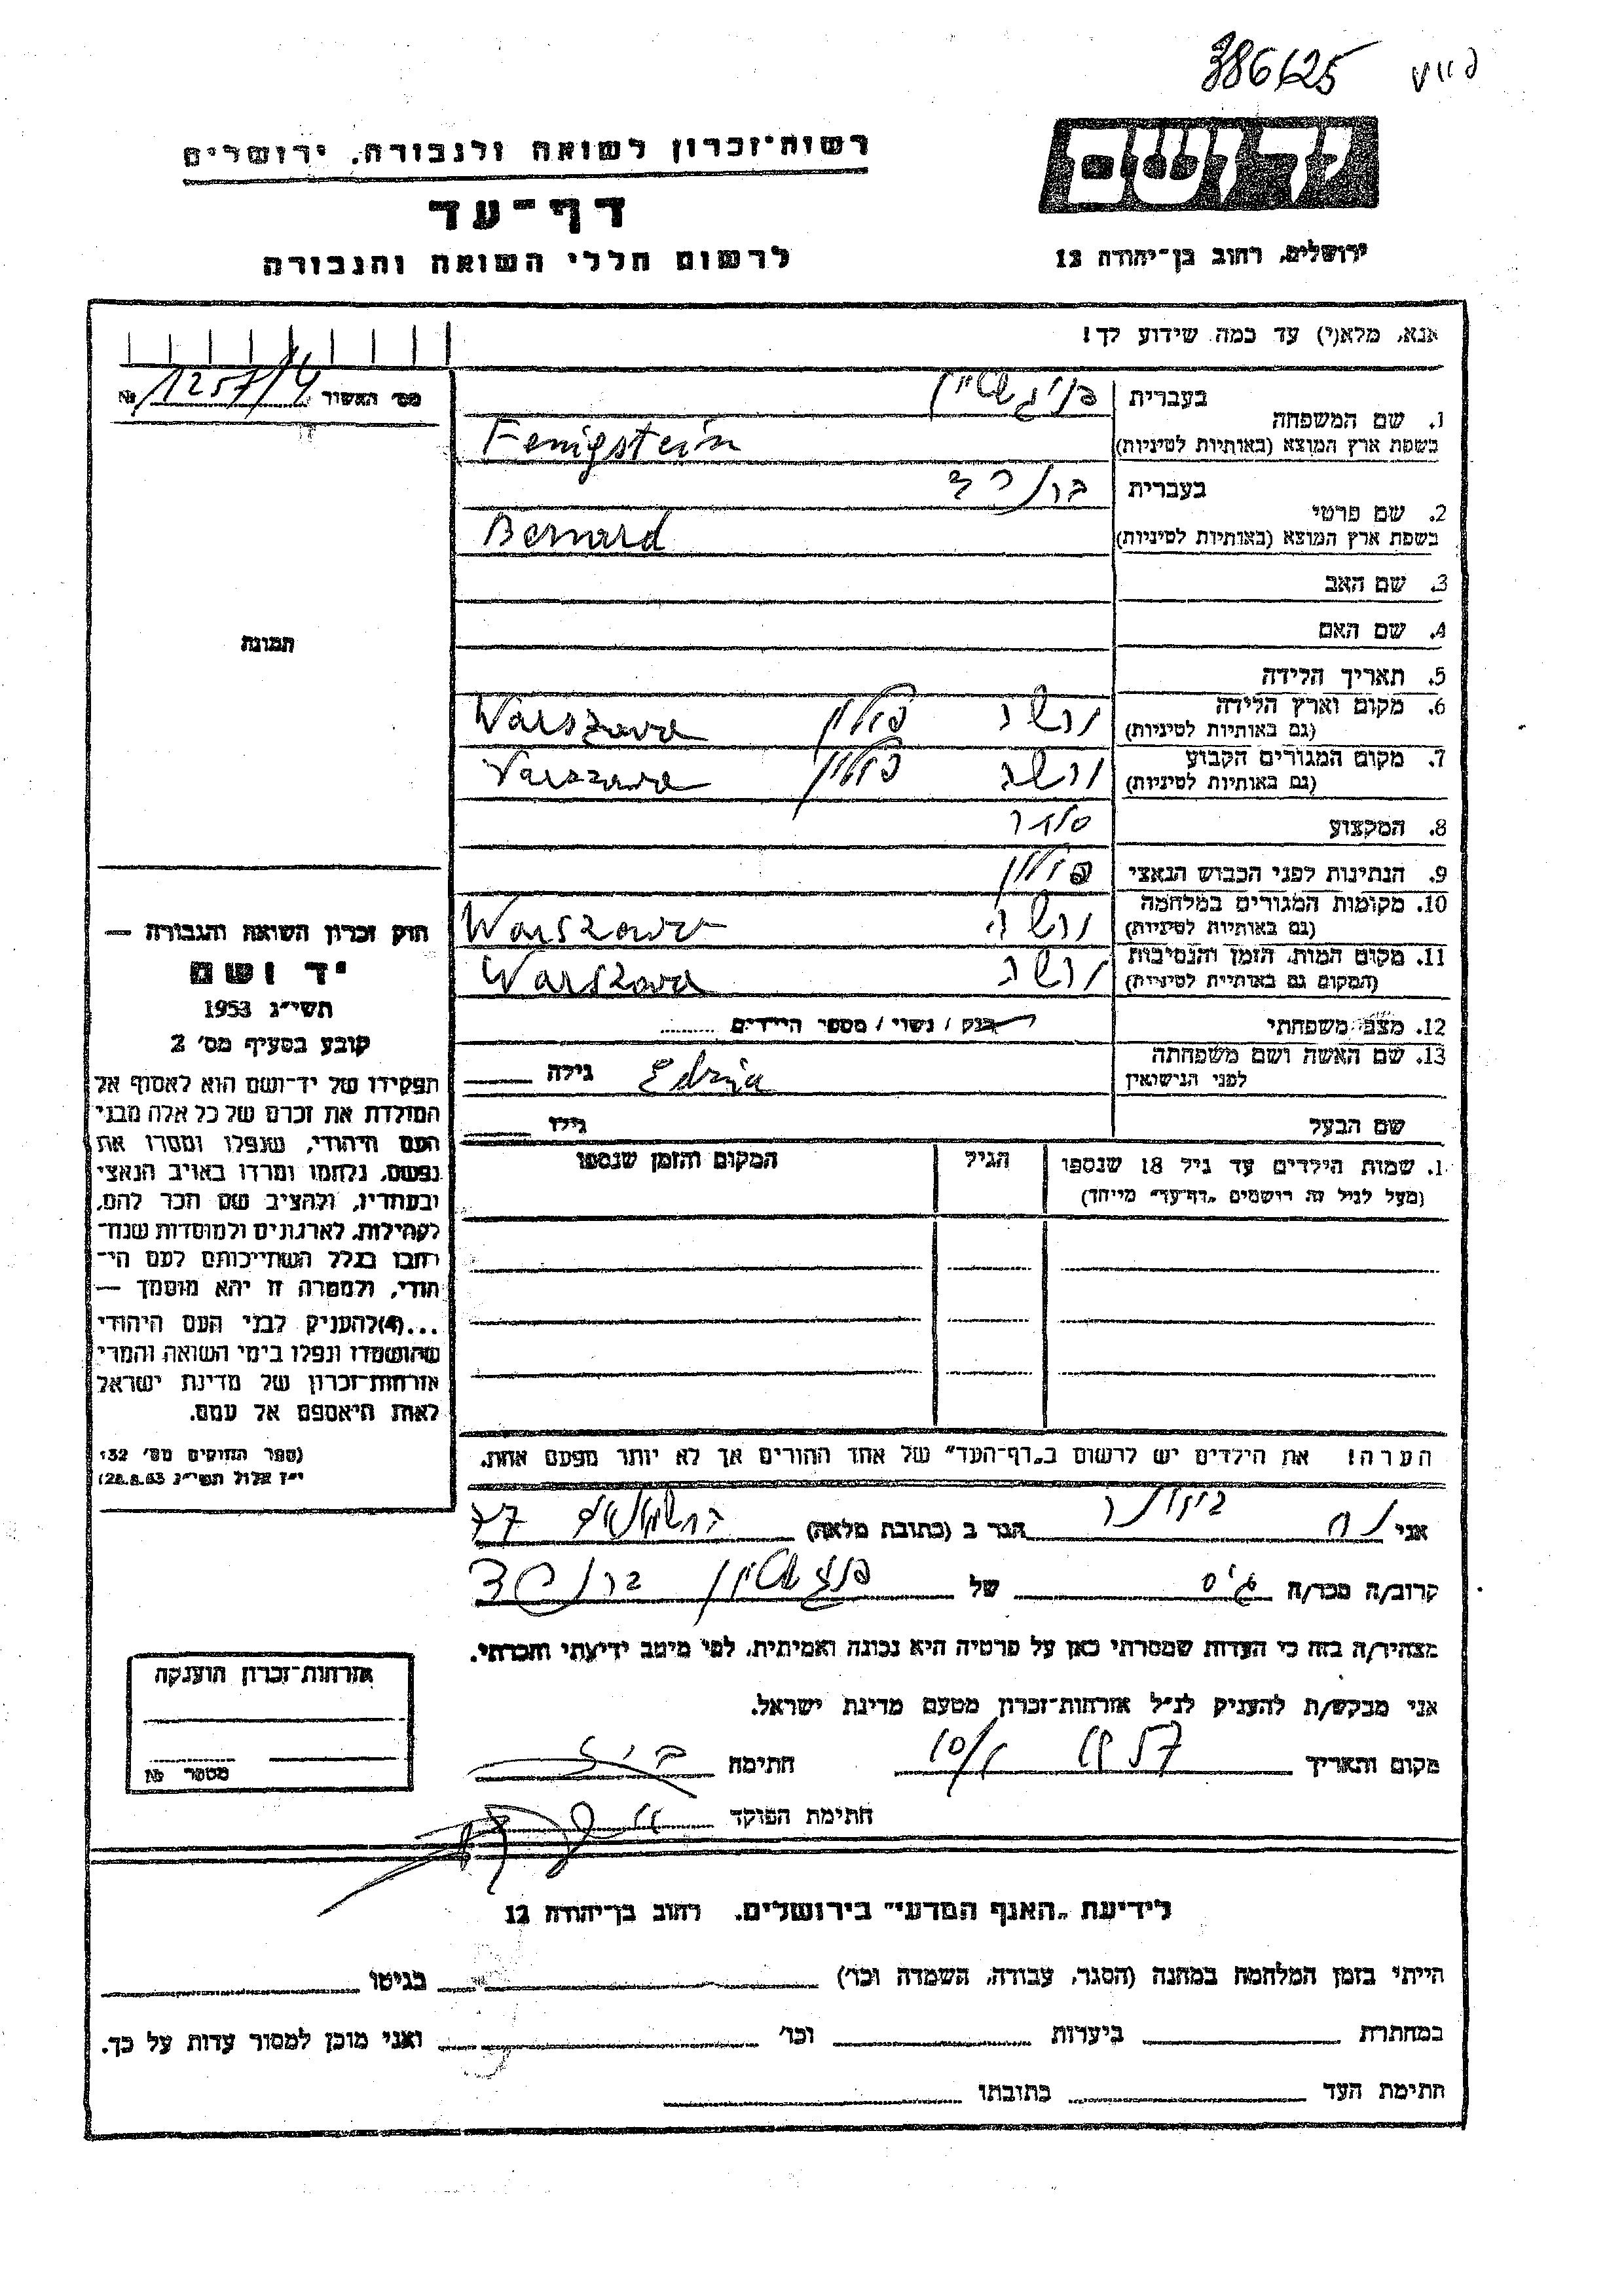 386/25
רשות־זכרון לשואה ולגבורה, ירושלים
יד ושם
דף־עד
לרשום חללי השואה והגבורה
ירושלים, רחוב בן־יהודה 12
אנא, מלא(י) עד כמה שידוע לך!
מס׳ האשור 1257/4 №
1. שם המשפחה
בעברית פניגשטיין
בשפת ארץ המוצא (באותיות לטיניות) Fenigstein
2. שם פרטי
בעברית ברנרד
בשפת ארץ המוצא (באותיות לטיניות) Bernard
3. שם האב
4. שם האם
תמונה
5. תאריך הלידה
6. מקום וארץ הלידה ורשה פולין Warszawa
(גם באותיות לטיניות)
7. מקום המגורים הקבוע ורשה פולין Warszawa
(גם באותיות לטיניות)
8. המקצוע סוחר
9. הנתינות לפני הכבוש הנאצי פולין
10. מקומות המגורים במלחמה ורשה Warszawa
(גם באותיות לטיניות)
11. מקום המות, הזמן והנסיבות ורשה Warszawa
(המקום גם באותיות לטיניות)
12. מצב משפחתי רווק / נשוי / מספר הילדים
13. שם האשה ושם משפחתה Edzia גילה
לפני הנישואין
שם הבעל גילו
1. שמות הילדים עד גיל 18 שנספו הגיל המקום והזמן שנספו
(מעל לגיל זה רושמים „דף־עד״ מיוחד)
הערה! את הילדים יש לרשום ב„דף־העד״ של אחד ההורים אך לא יותר מפעם אחת.
חוק זכרון השואה והגבורה —
יד ושם
תשי״ג 1953
קובע בסעיף מס׳ 2
תפקידו של יד־ושם הוא לאסוף אל
המולדת את זכרם של כל אלה מבני
העם היהודי, שנפלו ומסרו את
נפשם, נלחמו ומרדו באויב הנאצי
ובעוזריו, ולהציב שם וזכר להם,
לקהילות, לארגונים ולמוסדות שנח־
רבו בגלל השתייכותם לעם הי־
הודי, ולמטרה זו יהא מוסמך —
...(4)להעניק לבני העם היהודי
שהושמדו ונפלו בימי השואה והמרי
אזרחות־זכרון של מדינת ישראל
לאות היאספם אל עמם.
(ספר החוקים מס׳ 132
י״ז אלול תשי״ג 28.8.53)
אני הגר ב (כתובת מלאה) 27
קרוב/ה מכר/ה גיס של פניגשטיין ברנרד
מצהיר/ה בזה כי העדות שמסרתי כאן על פרטיה היא נכונה ואמיתית, לפי מיטב ידיעתי והכרתי.
אני מבקש/ת להעניק לנ״ל אזרחות־זכרון מטעם מדינת ישראל.
מקום ותאריך חתימה
חתימת הפוקד
אזרחות־זכרון הוענקה
מספר №
לידיעת „האגף המדעי״ בירושלים, רחוב בן־יהודה 12
הייתי בזמן המלחמה במחנה (הסגר, עבודה, השמדה וכו׳) בגיטו
במחתרת ביערות וכו׳ ואני מוכן למסור עדות על כך.
חתימת העד כתובתו